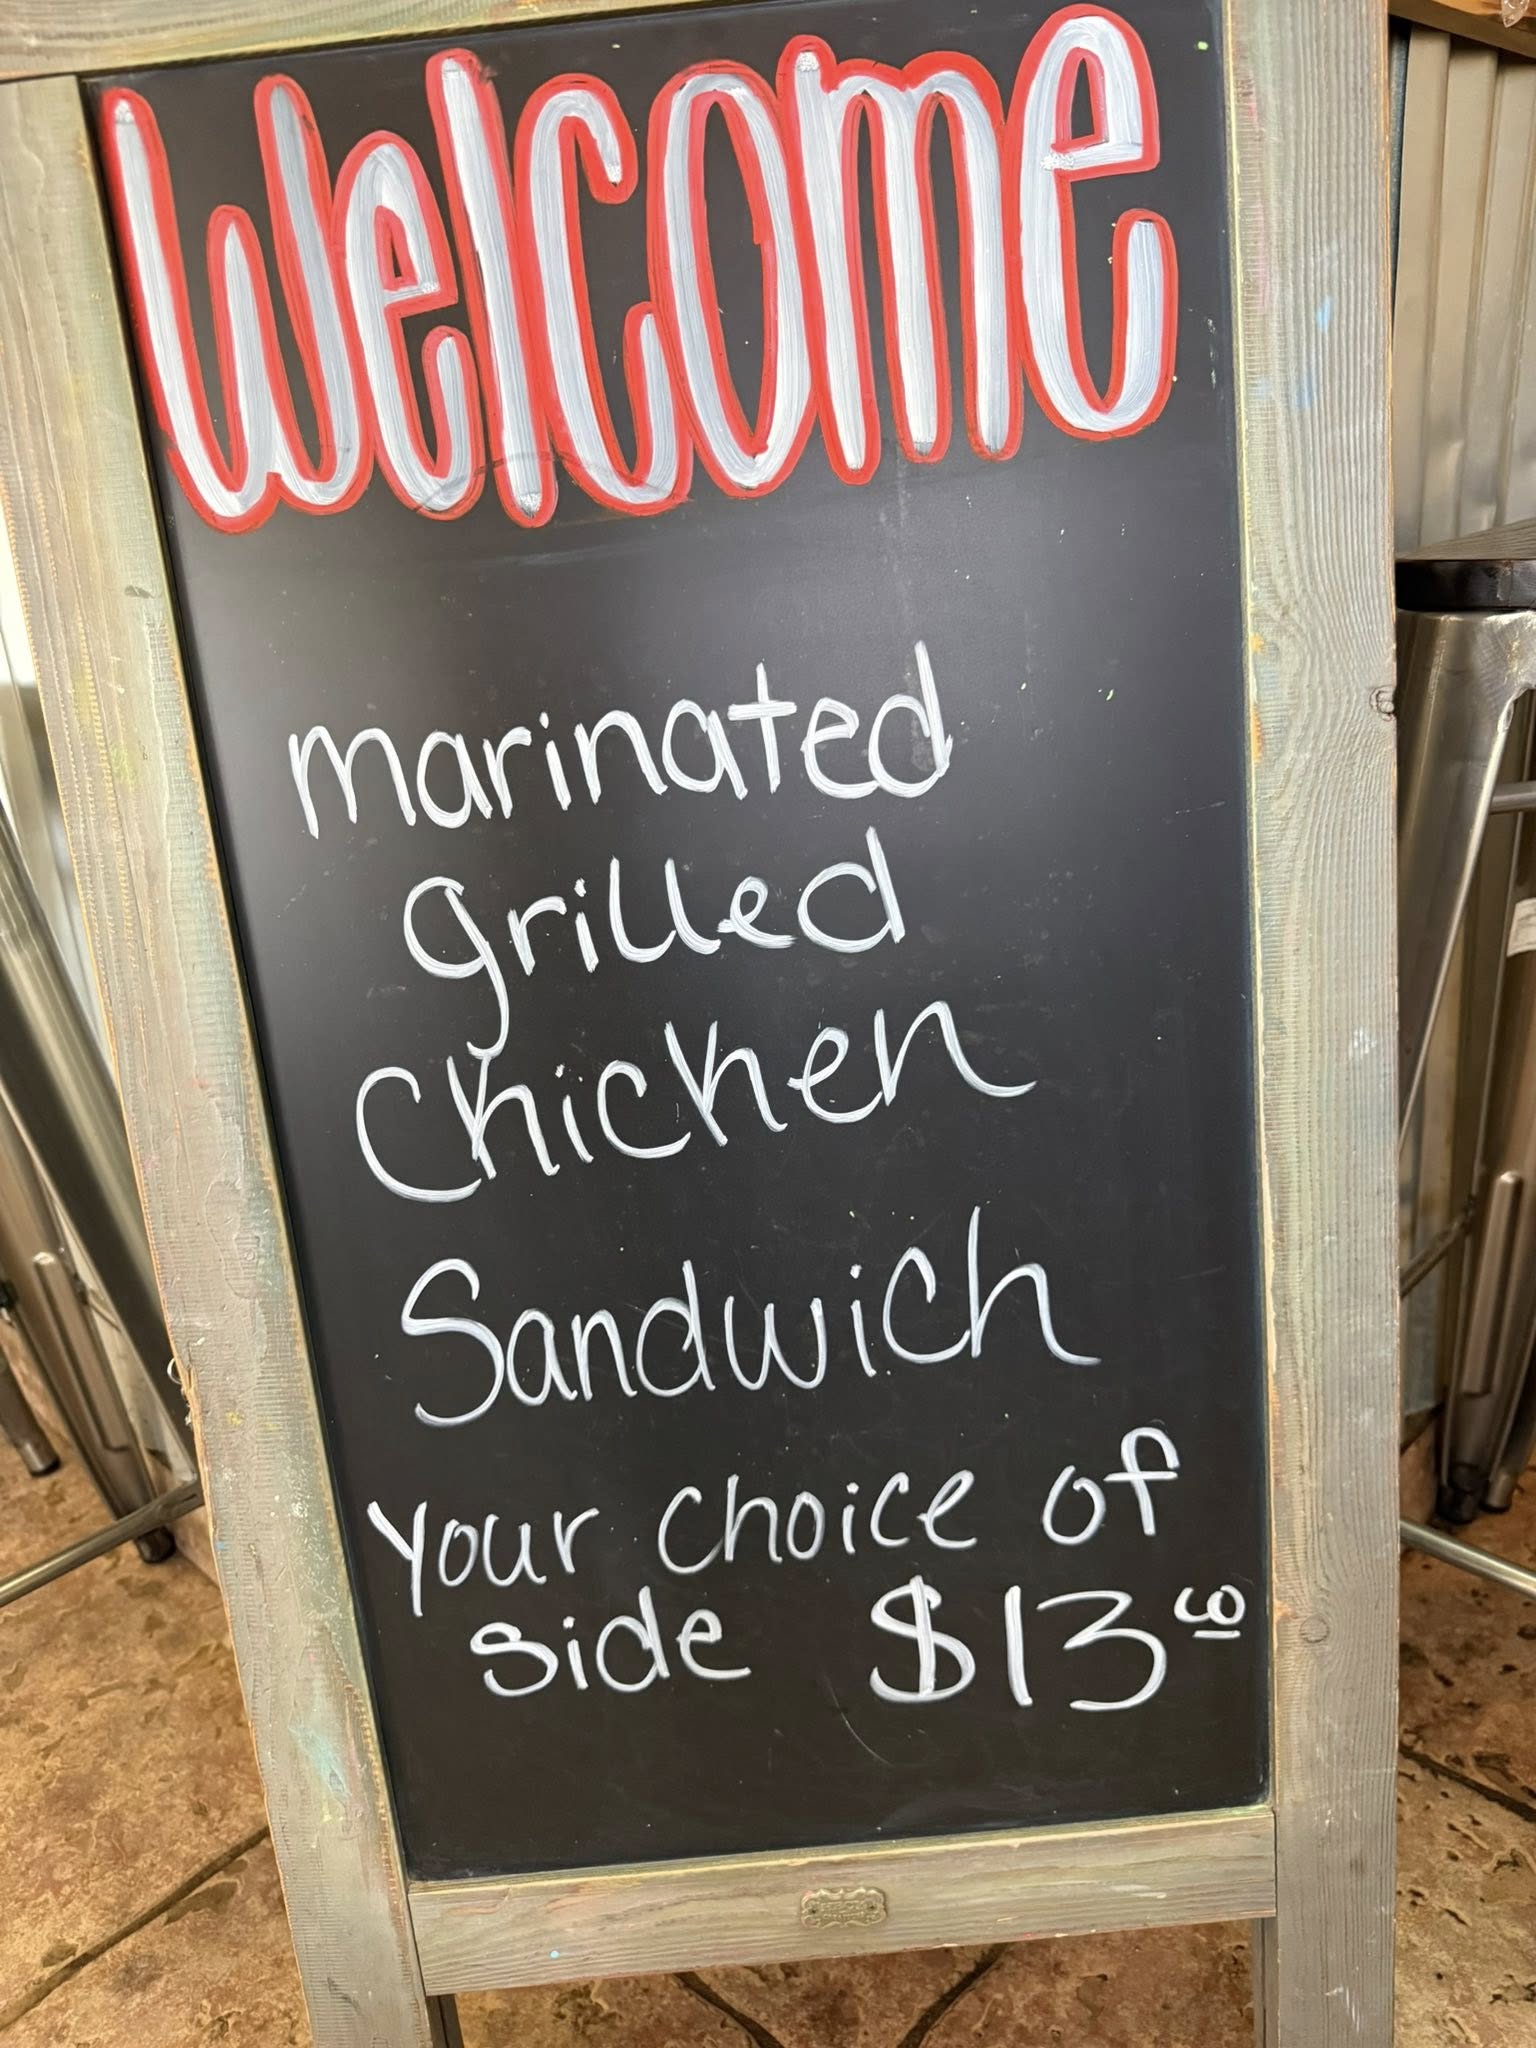 Welcome
marinated
grilled
Chicken
Sandwich
Your choice of
side $13.00